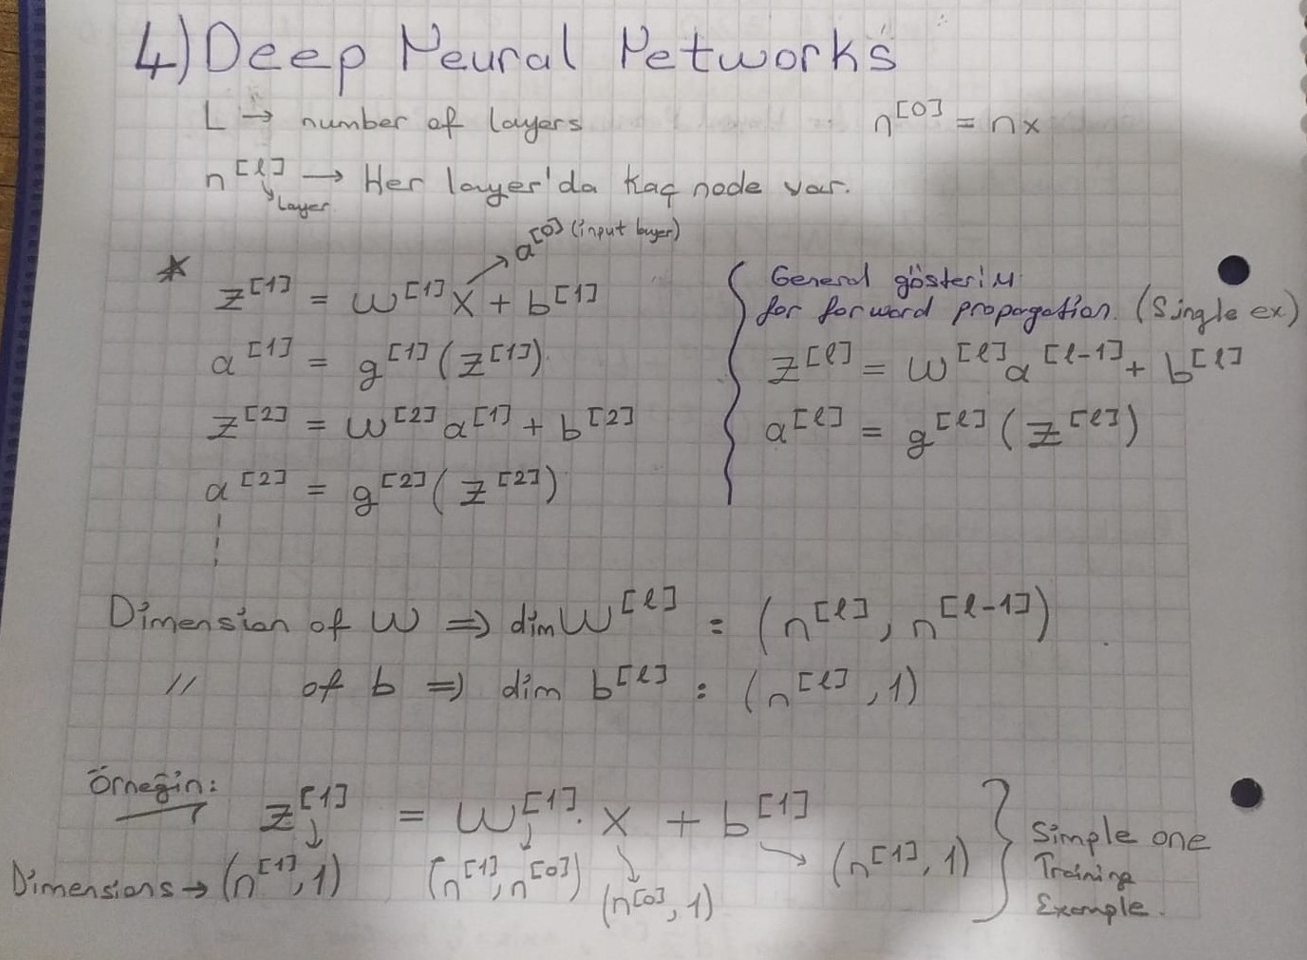 4) Deep Neural Networks
L → number of layers
n[0] = nx
n[l] → Her layer'da kaç node var.
layer
a[0] (input layer)
z[1] = w[1] x + b[1]
a[1] = g[1] (z[1])
z[2] = w[2] a[1] + b[2]
a[2] = g[2] (z[2])
General gösterim
for forward propagation. (Single ex)
z[l] = w[l] a[l-1] + b[l]
a[l] = g[l] (z[l])
Dimension of W ⇒ dim W[l] : (n[l], n[l-1])
// of b ⇒ dim b[l] : (n[l], 1)
Örneğin:
z[1] = W[1] . x + b[1]
Dimensions → (n[1], 1) (n[1], n[0]) (n[0], 1) (n[1], 1)
Simple one
Training
Example.